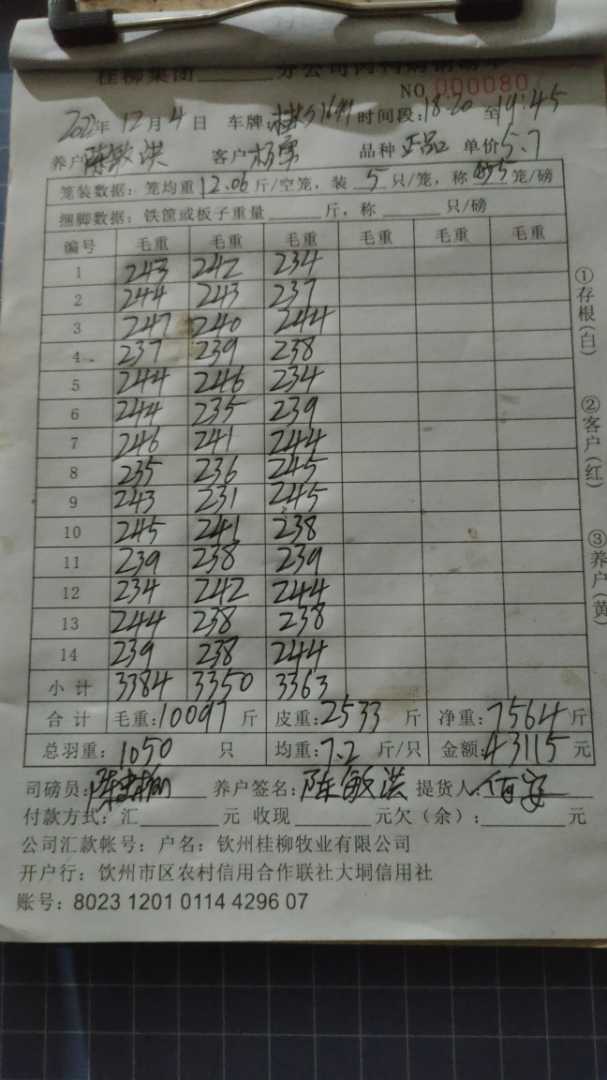 桂柳集团______分公司肉鸭购销磅单
NO 000080
2022年12月4日 车牌:桂 时间段:18:20 至19:45
养户 陈敏洪 客户 杨 品种 正品 单价 5.7
笼装数据：笼均重12.06斤/空笼，装 5 只/笼，称 5 笼/磅
捆脚数据：铁筐或板子重量______斤，称______只/磅
编号 毛重 毛重 毛重 毛重 毛重 毛重
1 243 242 234
2 244 243 237
3 247 240 244
4 237 239 238
5 244 246 234
6 244 235 239
7 246 241 244
8 235 236 245
9 243 231 245
10 245 241 238
11 239 238 239
12 234 242 244
13 244 238 238
14 239 238 244
小计 3384 3350 3363
合计 毛重:10097斤 皮重:2533斤 净重:7564斤
总羽重：1050 只 均重:7.2 斤/只 金额:43115元
司磅员: 陈 养户签名：陈敏洪 提货人:
付款方式：汇______元 收现______元欠（余）:______元
公司汇款帐号：户名：钦州桂柳牧业有限公司
开户行：钦州市区农村信用合作联社大垌信用社
账号：8023 1201 0114 4296 07
①存根(白)
②客户(红)
③养户(黄)